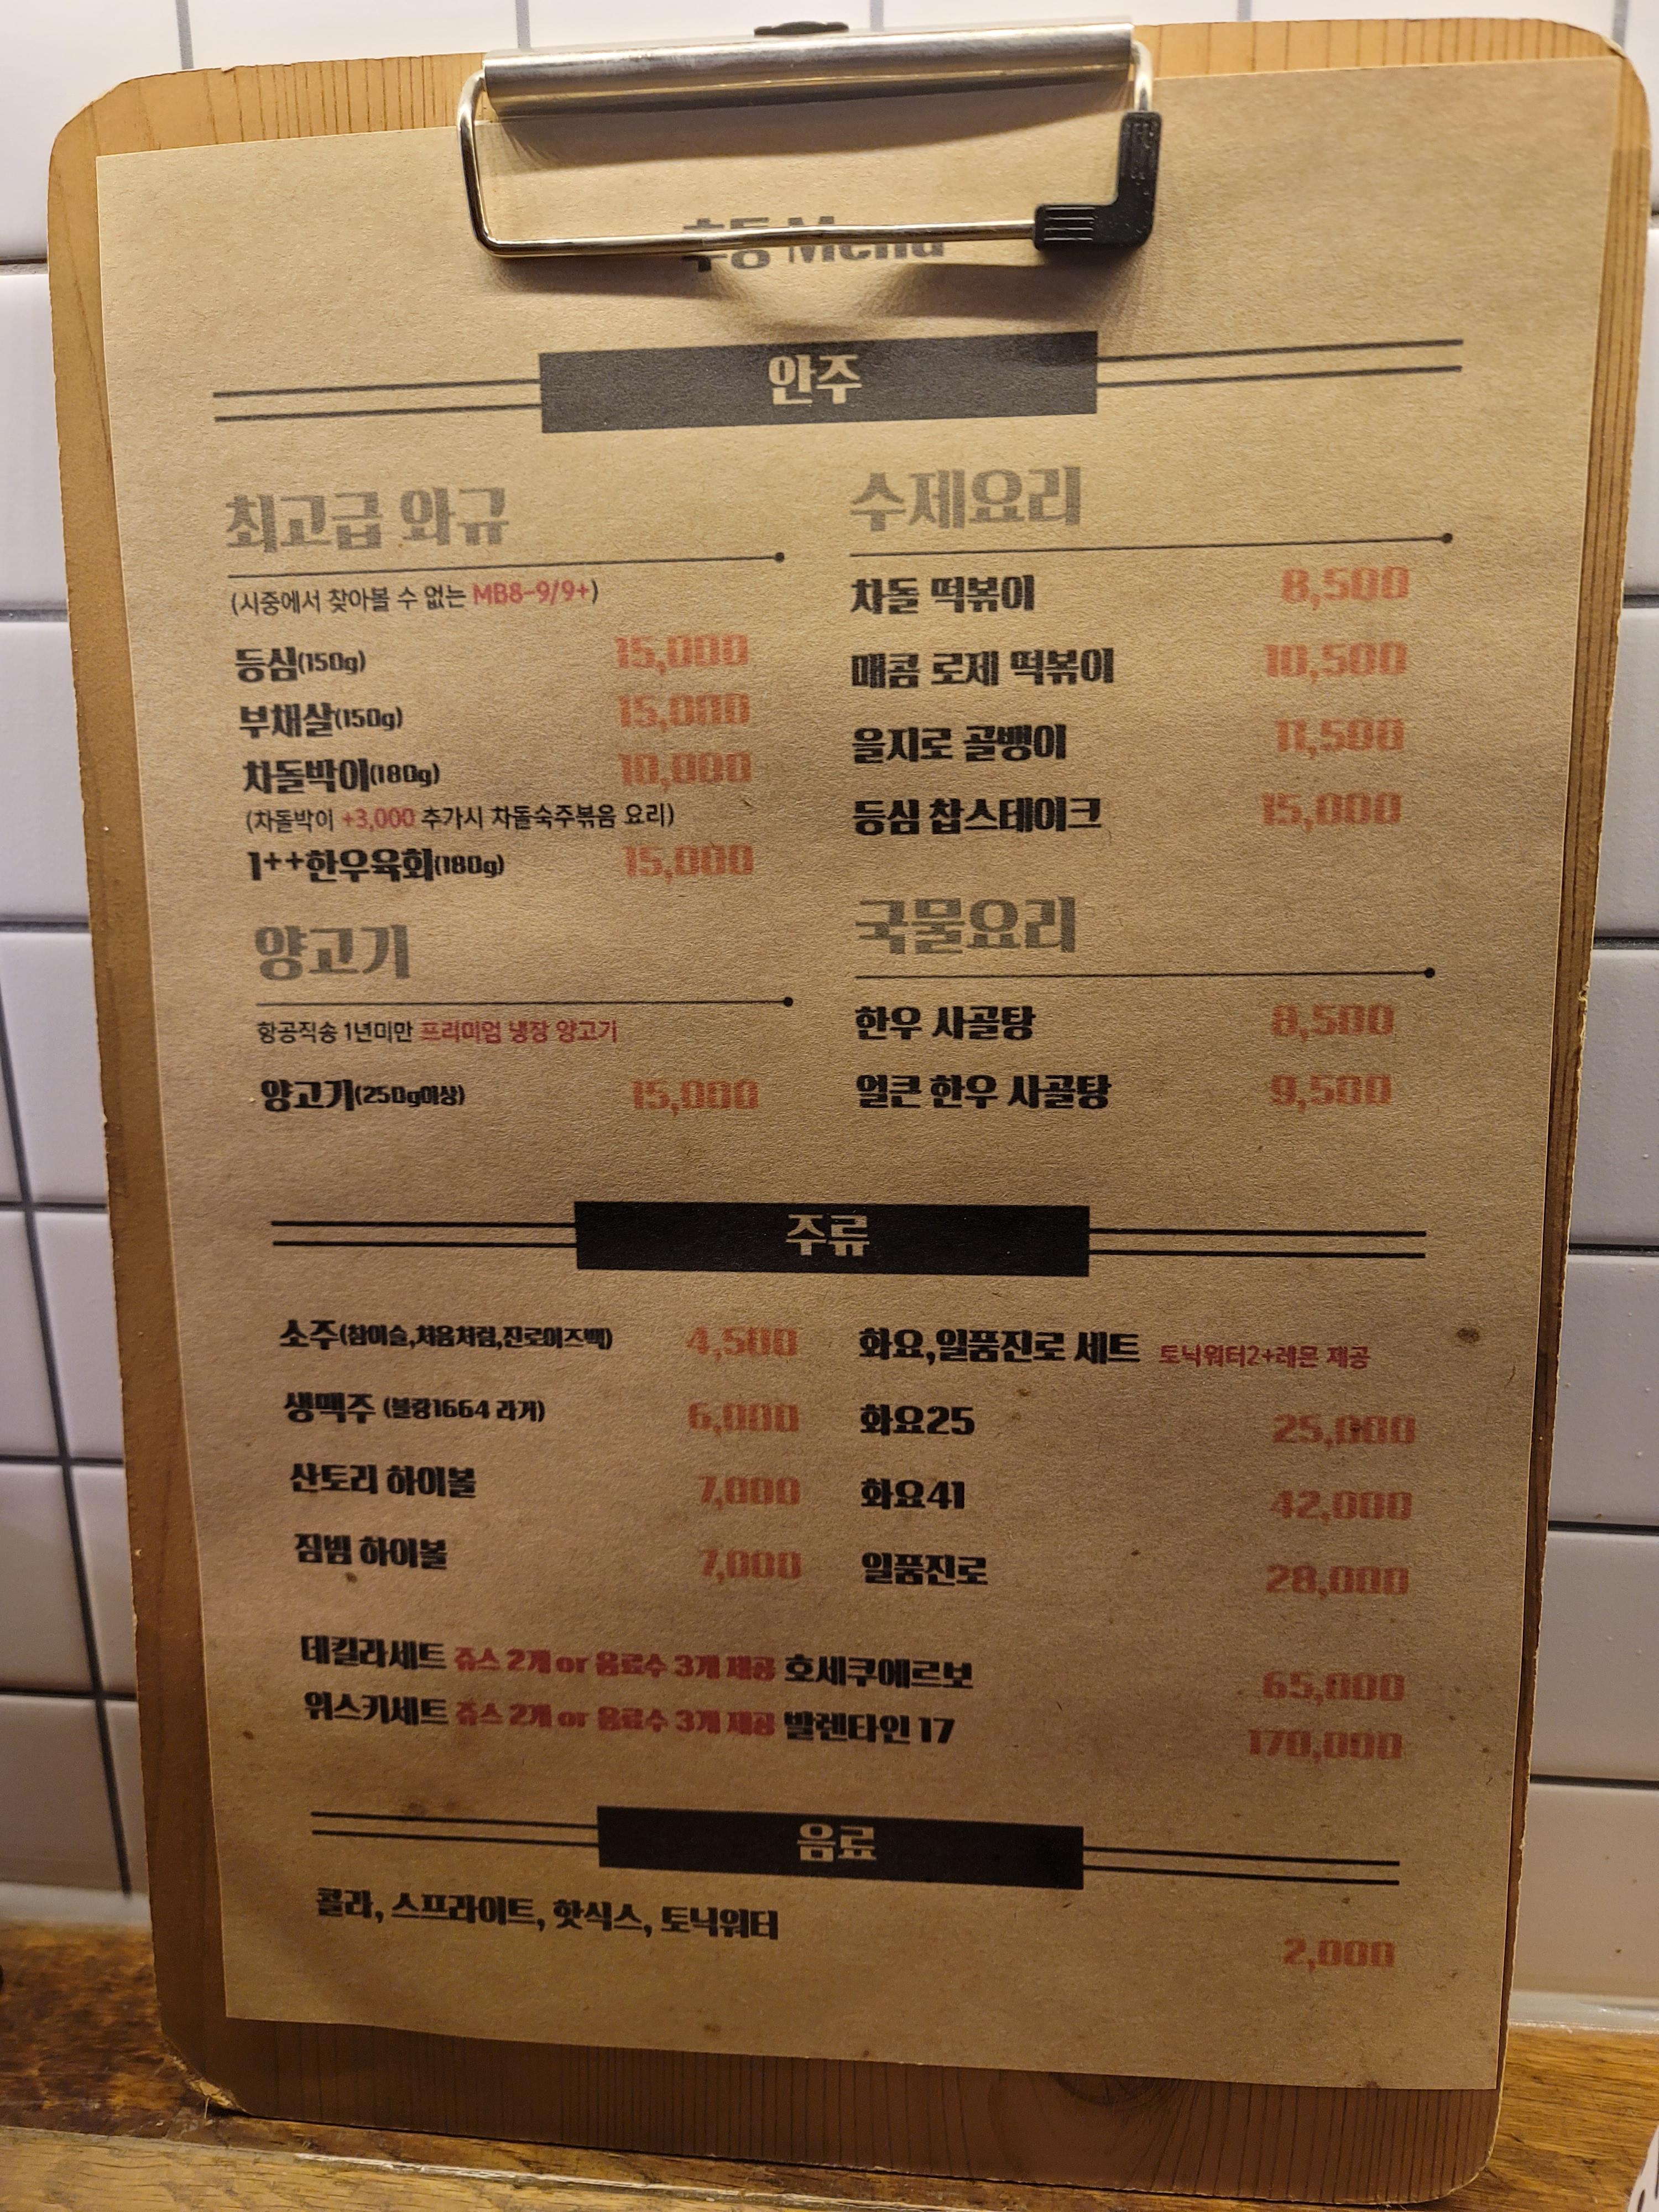 Menu
안주
최고급 와규
(시중에서 찾아볼 수 없는 MB8-9/9+)
등심(150g) 15,000
부채살(150g) 15,000
차돌박이(180g) 10,000
(차돌박이 +3,000 추가시 차돌숙주볶음 요리)
1++한우육회(180g) 15,000
양고기
항공직송 1년미만 프리미엄 냉장 양고기
양고기(250g이상) 15,000
수제요리
차돌 떡볶이 8,500
매콤 로제 떡볶이 10,500
을지로 골뱅이 11,500
등심 찹스테이크 15,000
국물요리
한우 사골탕 8,500
얼큰 한우 사골탕 9,500
주류
소주(참이슬,처음처럼,진로이즈백) 4,500
생맥주 (블랑1664 라거) 6,000
산토리 하이볼 7,000
짐빔 하이볼 7,000
화요,일품진로 세트 토닉워터2+레몬 제공
화요25 25,000
화요41 42,000
일품진로 28,000
데킬라세트 쥬스 2개 or 음료수 3개 제공 호세쿠에르보 65,000
위스키세트 쥬스 2개 or 음료수 3개 제공 발렌타인 17 170,000
음료
콜라, 스프라이트, 핫식스, 토닉워터 2,000